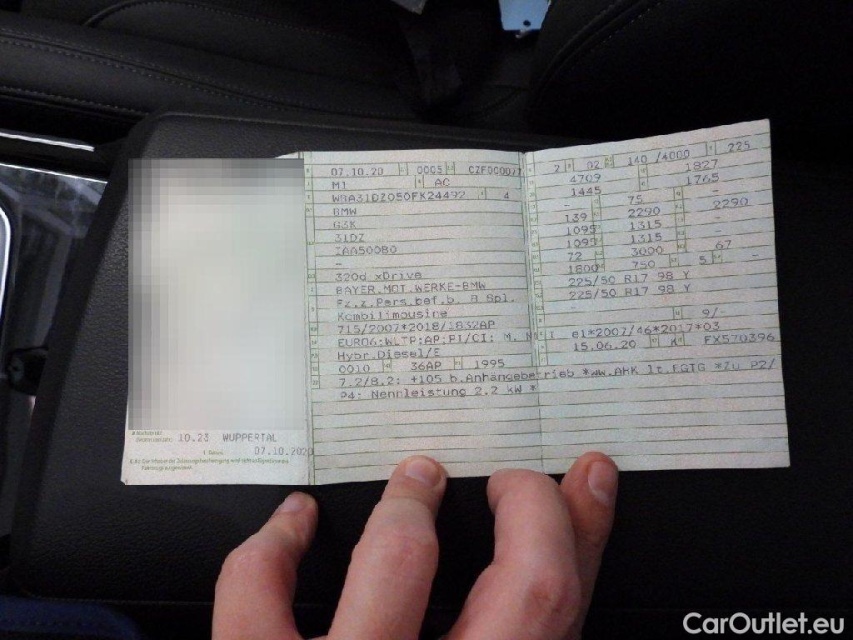 07.10.20 0005 CZF0000/7
M1 AC
WBA31DZ050FK24492 4
BMW
G3K
31DZ
IAA50080
-
320d xDrive
BAYER.MOT.WERKE-BMW
Fz.z.Pers.bef.b. 8 Spl.
Kombilimousine
715/2007*2018/1832AP
EURO6;WLTP;AP;PI/CI; M, N1 I
Hybr.Diesel/E
0010 36AP 1995
7.2/8.2: +105 b.Anhängebetrieb *ww.AHK lt.EGTG *Zu P2/
P4: Nennleistung 2.2 kW *
2 02 140 /4000 225
4709 1827
1445 1765
- 75
139 2290 2290
1095 1315
1095 1315
72 3000 67
1800 750 5 -
225/50 R17 98 Y
225/50 R17 98 Y
9/-
e1*2007/46*2017*03
15.06.20 K FX570396
10.23 WUPPERTAL
07.10.202
CarOutlet.eu